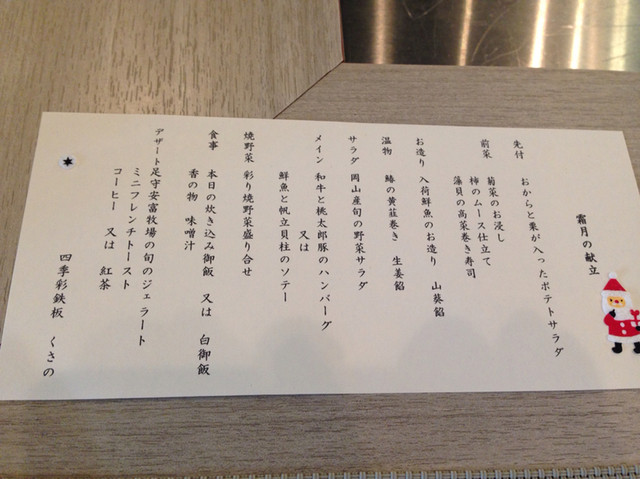 霜月の献立
先付　おからと栗が入ったポテトサラダ
前菜　菊菜のお浸し
柿のムース仕立て
藻貝の高菜巻き寿司
お造り　入荷鮮魚のお造り　山葵餡
温物　鰆の黄韮巻き　生姜餡
サラダ　岡山産旬の野菜サラダ
メイン　和牛と桃太郎豚のハンバーグ
又は
鮮魚と帆立貝柱のソテー
焼野菜　彩り焼野菜盛り合せ
食事　本日の炊き込み御飯　又は　白御飯
香の物　味噌汁
デザート　足守安富牧場の旬のジェラート
ミニフレンチトースト
コーヒー　又は　紅茶
四季彩鉄板　くさの